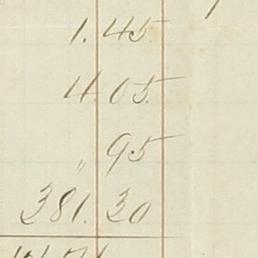 1.45
4.05
" 95
381.30